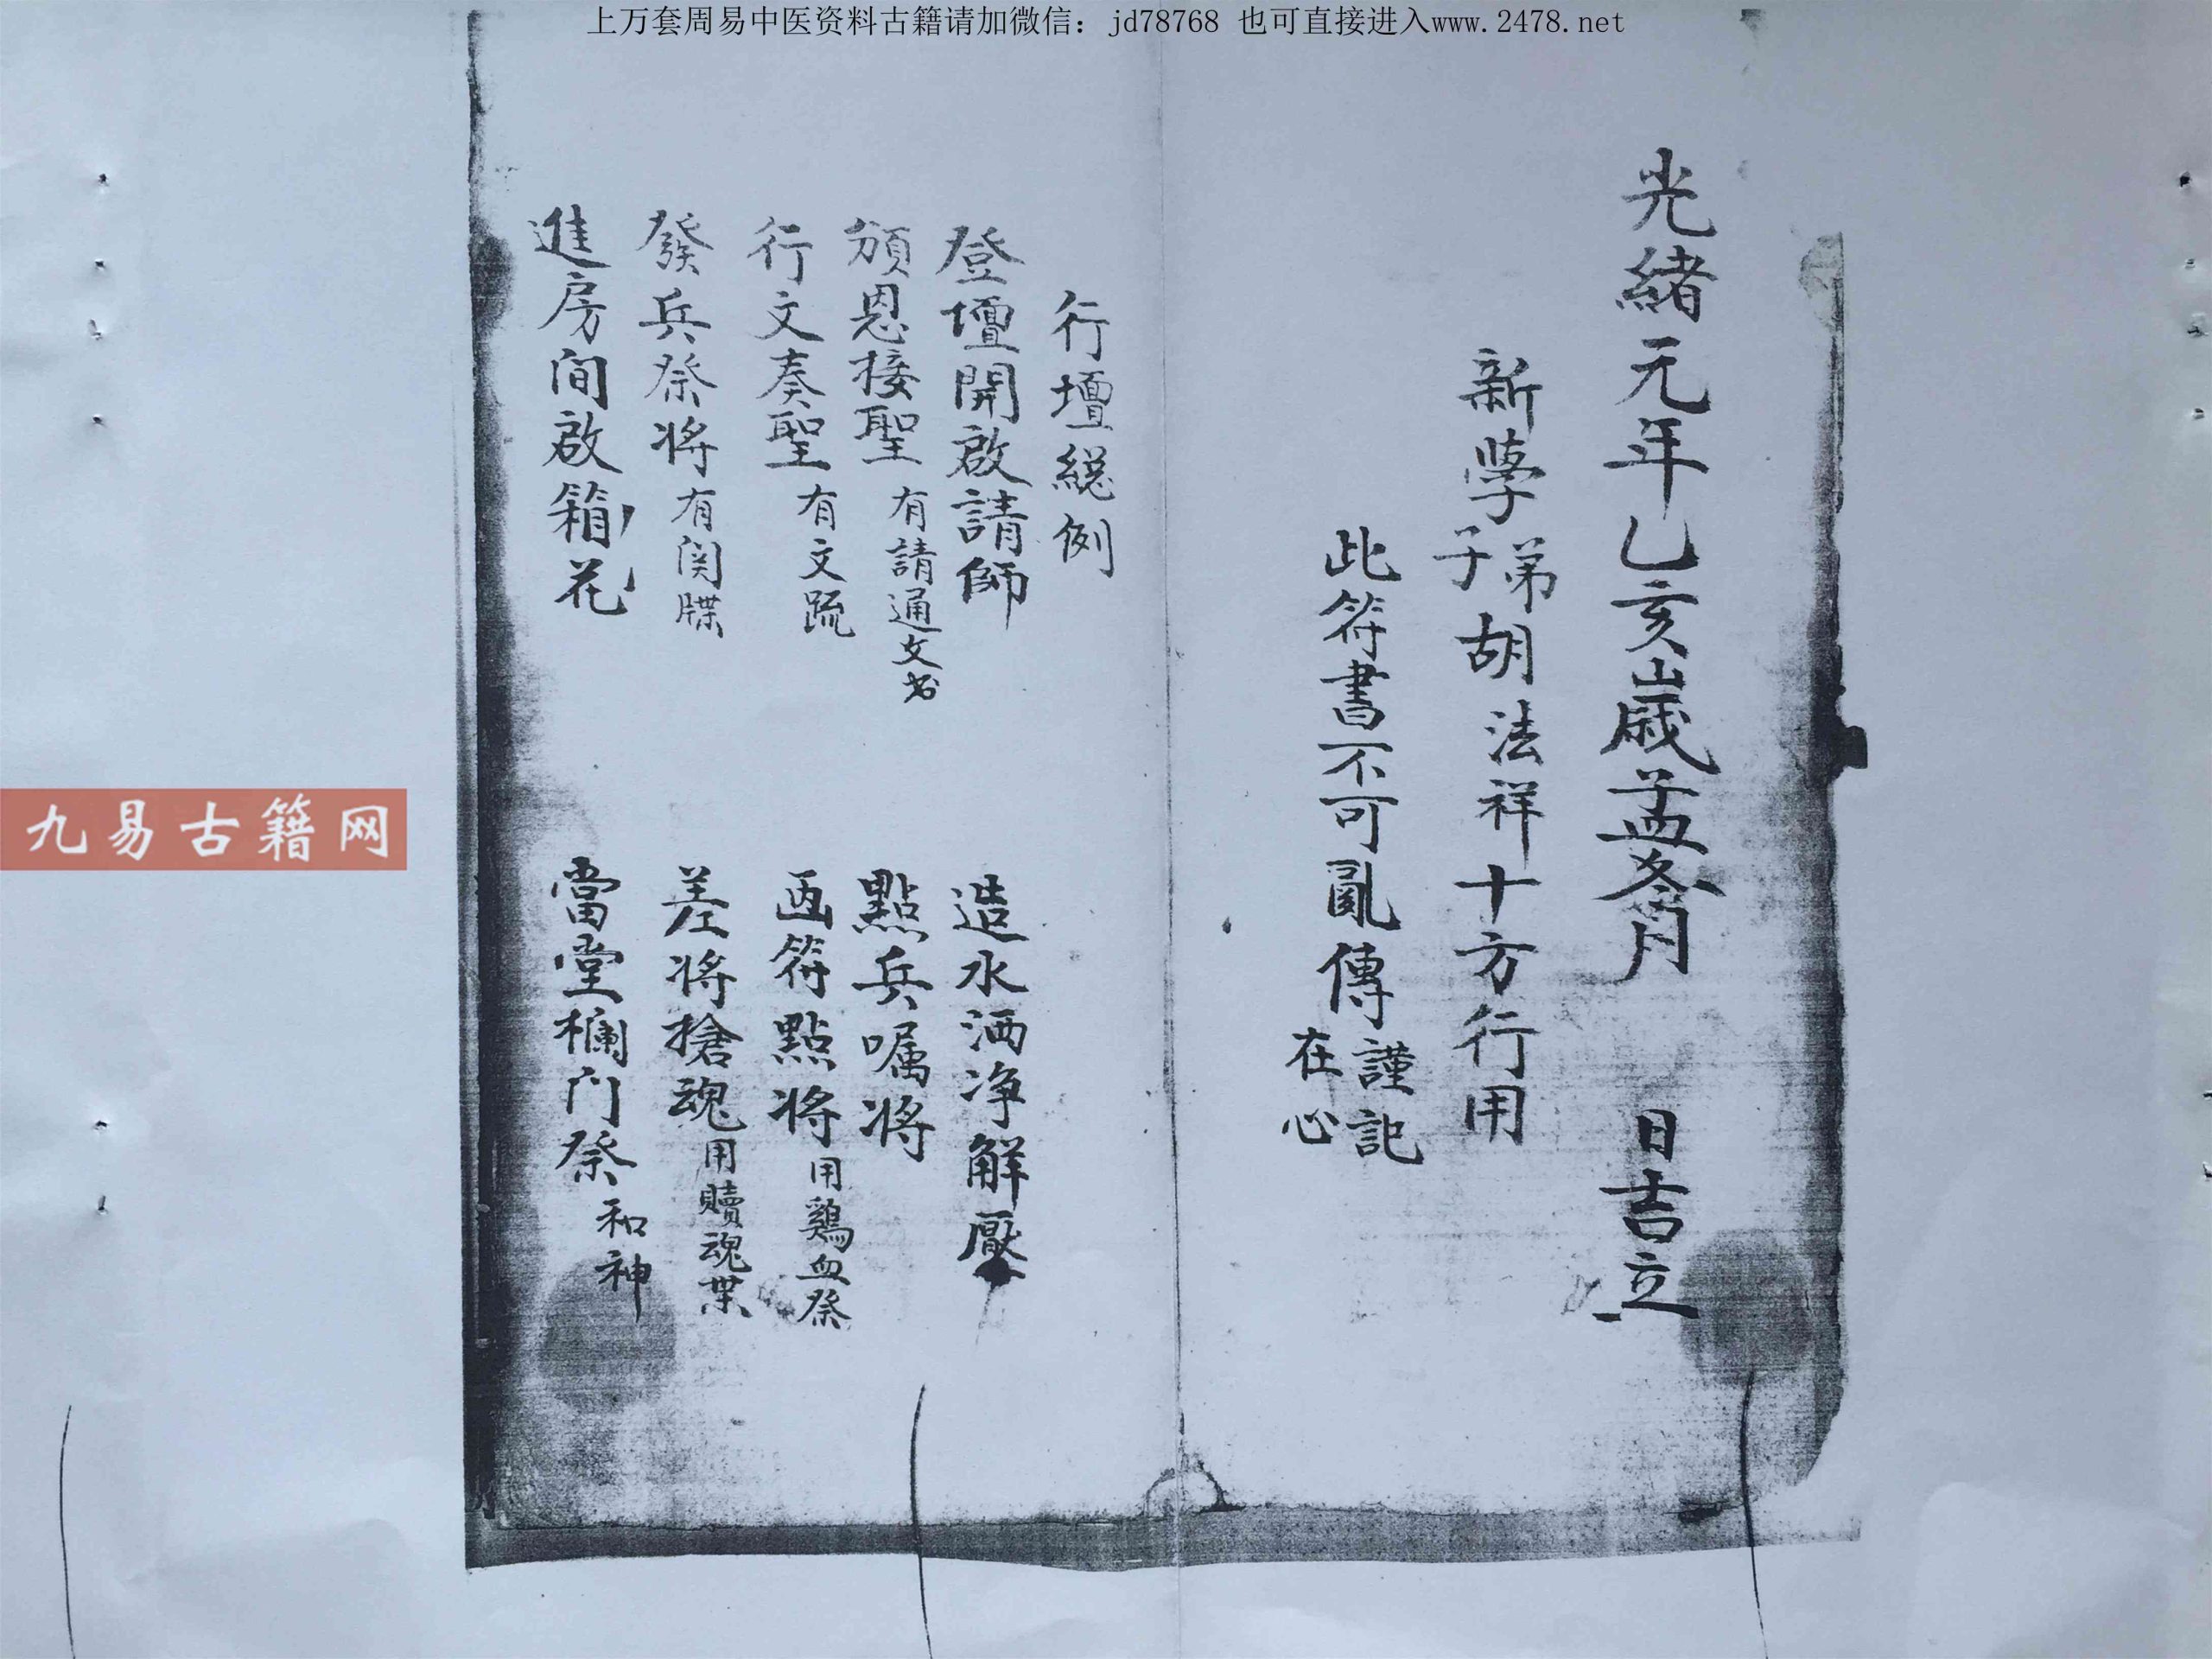 上万套周易中医资料古籍请加微信：jd78768 也可直接进入www.2478.net
光緒元年乙亥歲孟冬月 日吉立
新學弟子胡法祥十方行用
此符書不可亂傳謹記在心
行壇総例
登壇開啟請師 造水洒净解厭
頒恩接聖有請通文書 點兵囑将
行文奏聖有文疏 画符點将用鷄血祭
發兵祭将有関牒 差将搶魂用贖魂
進房间啟箱花 當堂欄门祭和神
九易古籍网